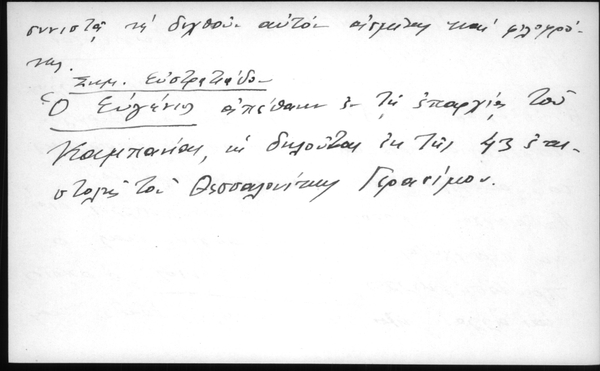 συνιστᾷ νὰ δεχθοῦν αὐτὸν ἀσμένως καὶ φιλοφρό-
νως.
Σημ. Εὐστρατιάδου
Ὁ Εὐγένιος ἀπέθανεν ἐν τῇ ἐπαρχίᾳ τοῦ
Καμπανίας, ὡς δηλοῦται ἐκ τῆς 43 ἐπι-
στολῆς τοῦ Θεσσαλονίκης Γερασίμου.